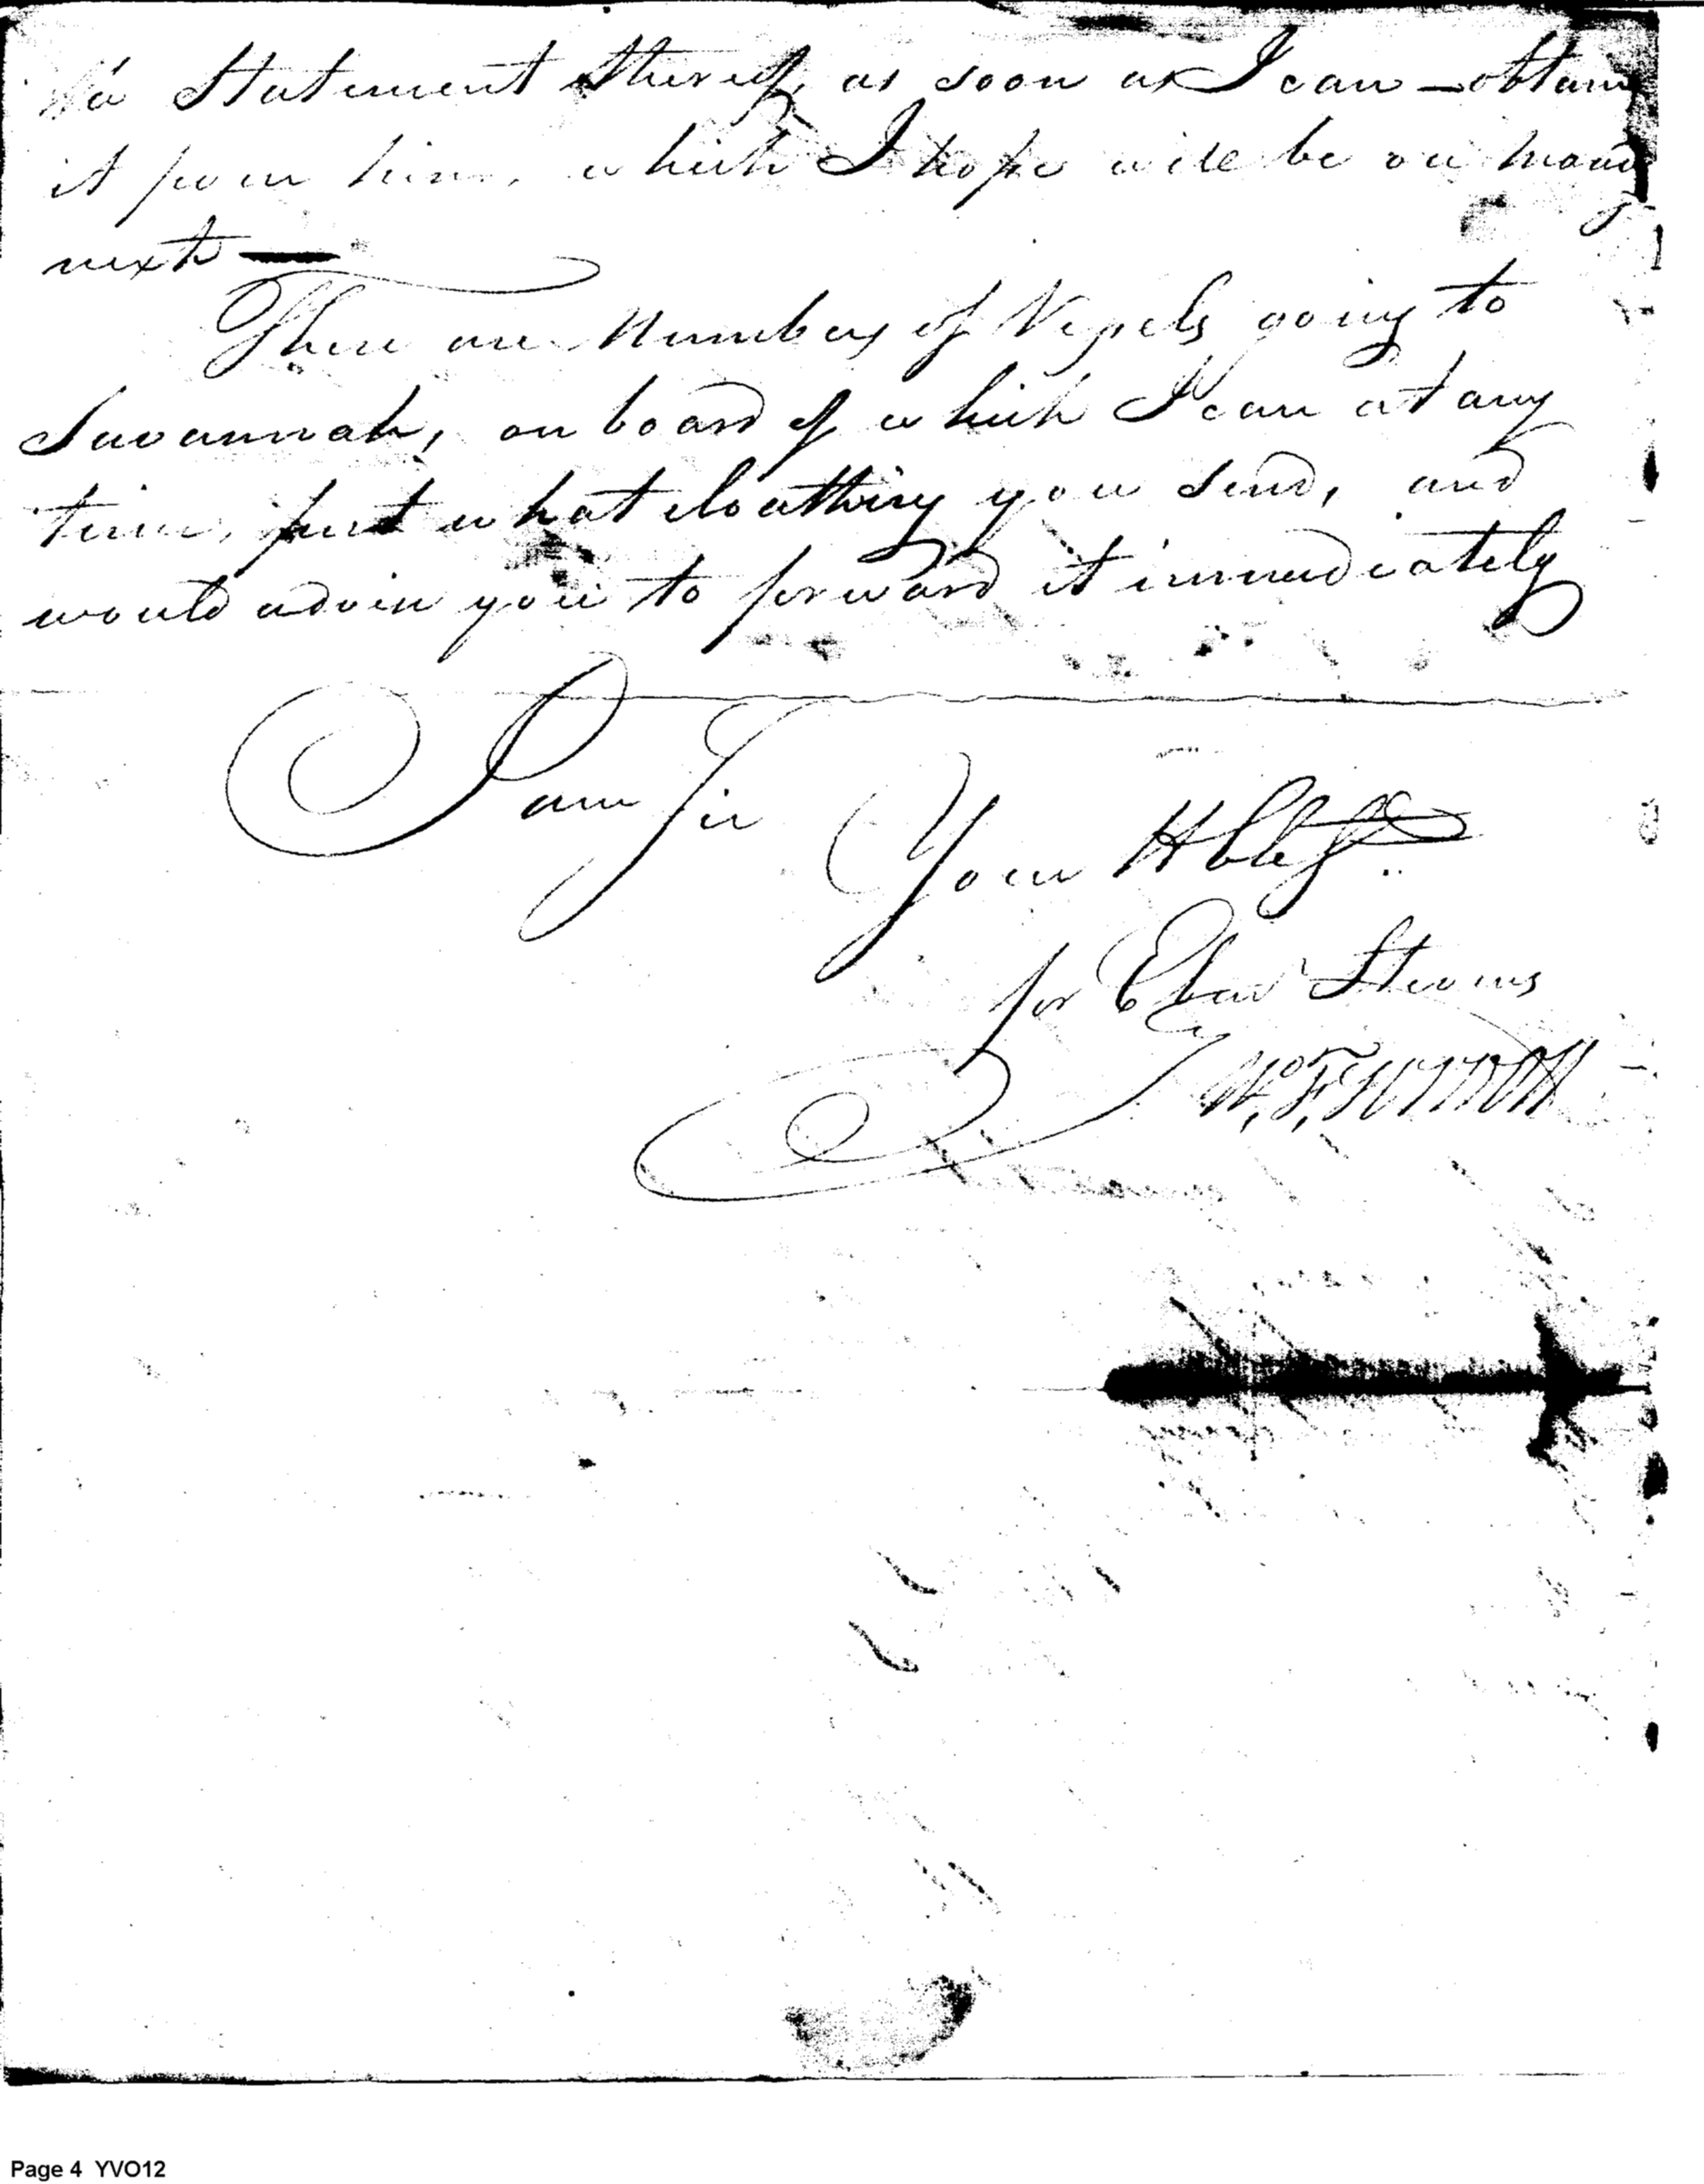 a Statement thereof, as soon as I can obtain
it from him, which I hope will be on Monday
next —
There are Numbers of Vessels going to
Savannah, on board of which I can at any
time, put what cloathing you send, and
would advise you to forward it immediately
I am Sir
Your Hble St.
for Eben Stevens
Page 4 YVO12